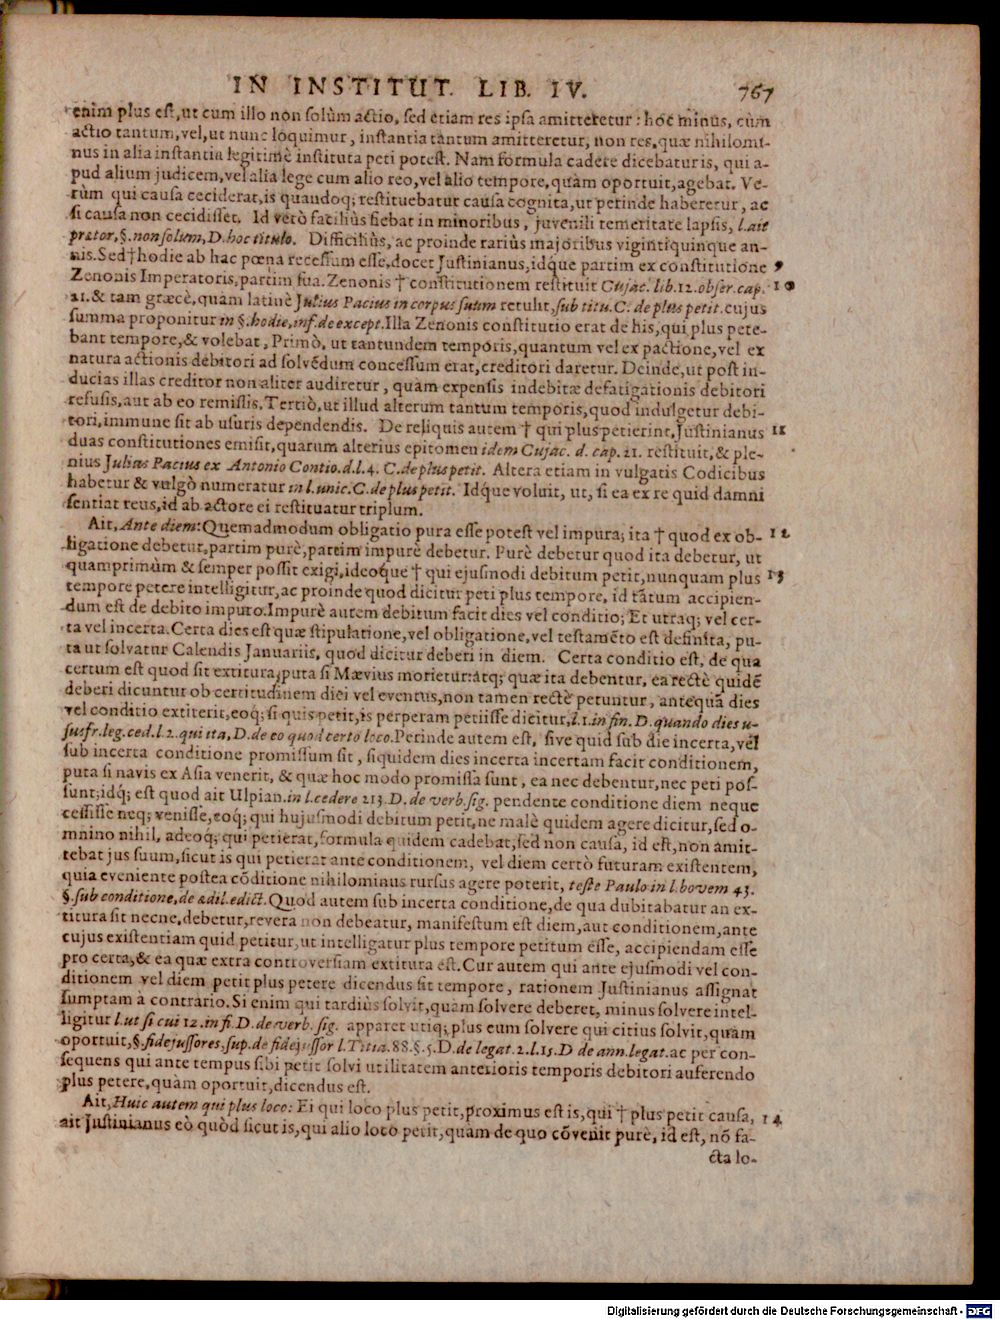 IN INSTITUT. LIB. IV. 767
enim plus est, ut cum illo non solùm actio, sed etiam res ipsa amitteretur: hoc minus, cùm
actio tantum, vel, ut nunc loquimur, instantia tantum amitteretur, non res, quæ nihilomi-
nus in alia instantia legitimè instituta peti potest. Nam formula cadere dicebatur is, qui a-
pud alium judicem, vel alia lege cum alio reo, vel alio tempore, quàm oportuit, agebat. Ve-
rùm qui causa ceciderat, is quandoq; restituebatur causa cognita, ut perinde haberetur, ac
si causa non cecidisset. Id verò faciliùs fiebat in minoribus, juvenili temeritate lapsis, l. ait
prætor, §. non solum, D. hoc titulo. Difficiliùs, ac proinde rariùs majoribus vigintiquinque an-
nis. Sed † hodie ab hac pœna recessum esse, docet Justinianus, idque partim ex constitutione 9
Zenonis Imperatoris, partim sua. Zenonis † constitutionem restituit Cujac. lib. 12. obser. cap. 10
21. & tam græcè, quàm latinè Julius Pacius in corpus suum retulit, sub titu. C. de plus petit. cujus
summa proponitur in §. hodie, inf. de except. Illa Zenonis constitutio erat de his, qui plus pete-
bant tempore, & volebat, Primò, ut tantundem temporis, quantum vel ex pactione, vel ex
natura actionis debitori ad solvẽdum concessum erat, creditori daretur. Deinde, ut post in-
ducias illas creditor non aliter audiretur, quàm expensis indebitæ defatigationis debitori
refusis, aut ab eo remissis. Tertiò, ut illud alterum tantum temporis, quod indulgetur debi-
tori, immune sit ab usuris dependendis. De reliquis autem † qui plus petierint, Justinianus 11
duas constitutiones emisit, quarum alterius epitomen idem Cujac. d. cap. 21. restituit, & ple-
nius Julius Pacius ex Antonio Contio. d. l. 4. C. de plus petit. Altera etiam in vulgatis Codicibus
habetur & vulgò numeratur in l. unic. C. de plus petit. Idque voluit, ut, si ea ex re quid damni
sentiat reus, id ab actore ei restituatur triplum.
Ait, Ante diem: Quemadmodum obligatio pura esse potest vel impura; ita † quod ex ob- 12
ligatione debetur, partim purè, partim impurè debetur. Purè debetur quod ita debetur, ut
quamprimùm & semper possit exigi, ideoque † qui ejusmodi debitum petit, nunquam plus 13
tempore petere intelligitur, ac proinde quod dicitur peti plus tempore, id tãtum accipien-
dum est de debito impuro. Impurè autem debitum facit dies vel conditio; Et utraq; vel cer-
ta vel incerta. Certa dies est quæ stipulatione, vel obligatione, vel testamẽto est definita, pu-
ta ut solvatur Calendis Januariis, quod dicitur deberi in diem. Certa conditio est, de qua
certum est quod sit extitura, puta si Mævius morietur: atq; quæ ita debentur, ea rectè quidẽ
deberi dicuntur ob certitudinem diei vel eventus, non tamen rectè petuntur, antequã dies
vel conditio extiterit, eoq; si quis petit, is perperam petiisse dicitur, l. 1. in fin. D. quando dies u-
susfr. leg. ced. l. 2. qui ita, D. de eo quod certo loco. Perinde autem est, sive quid sub die incerta, vel
sub incerta conditione promissum sit, siquidem dies incerta incertam facit conditionem,
puta si navis ex Asia venerit, & quæ hoc modo promissa sunt, ea nec debentur, nec peti pos-
sunt; idq; est quod ait Ulpian. in l. cedere 213. D. de verb. sig. pendente conditione diem neque
cessisse neq; venisse, eoq; qui hujusmodi debitum petit, ne malè quidem agere dicitur, sed o-
mnino nihil, adeoq; qui petierat, formula quidem cadebat, sed non causa, id est, non amit-
tebat jus suum, sicut is qui petierat ante conditionem, vel diem certò futuram existentem,
quia eveniente postea cõditione nihilominus rursus agere poterit, teste Paulo in l. bovem 43.
§. sub conditione, de ædil. edict. Quod autem sub incerta conditione, de qua dubitabatur an ex-
titura sit necne, debetur, revera non debeatur, manifestum est diem, aut conditionem, ante
cujus existentiam quid petitur, ut intelligatur plus tempore petitum esse, accipiendam esse
pro certa, & ea quæ extra controversiam extitura est. Cur autem qui ante ejusmodi vel con-
ditionem vel diem petit plus petere dicendus sit tempore, rationem Justinianus assignat
sumptam à contrario. Si enim qui tardiùs solvit, quàm solvere deberet, minus solvere intel-
ligitur l. ut si cui 12. in fi. D. de verb. sig. apparet utiq; plus eum solvere qui citius solvit, quàm
oportuit, §. fidejussores, sup. de fidejussor l. Titia. 88. §. 5. D. de legat. 2. l. 15. D de ann. legat. ac per con-
sequens qui ante tempus sibi petit solvi utilitatem anterioris temporis debitori auferendo
plus petere, quàm oportuit, dicendus est.
Ait, Huic autem qui plus loco: Ei qui loco plus petit, proximus est is, qui † plus petit causa, 14
ait Justinianus eò quòd sicut is, qui alio loco petit, quàm de quo cõvenit purè, id est, nõ fa-
cta lo-
Digitalisierung gefördert durch die Deutsche Forschungsgemeinschaft - DFG